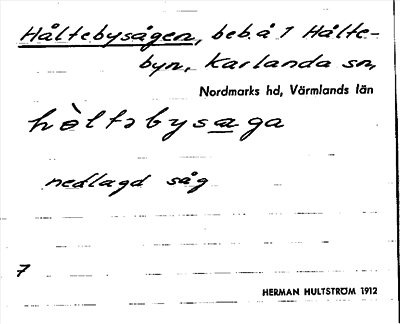 Håltebysågen, beb. å 1 Hålte-
byn, Karlanda sn,
Nordmarks hd, Värmlands län
hòltəbysaga
nedlagd såg
7
HERMAN HULTSTRÖM 1912